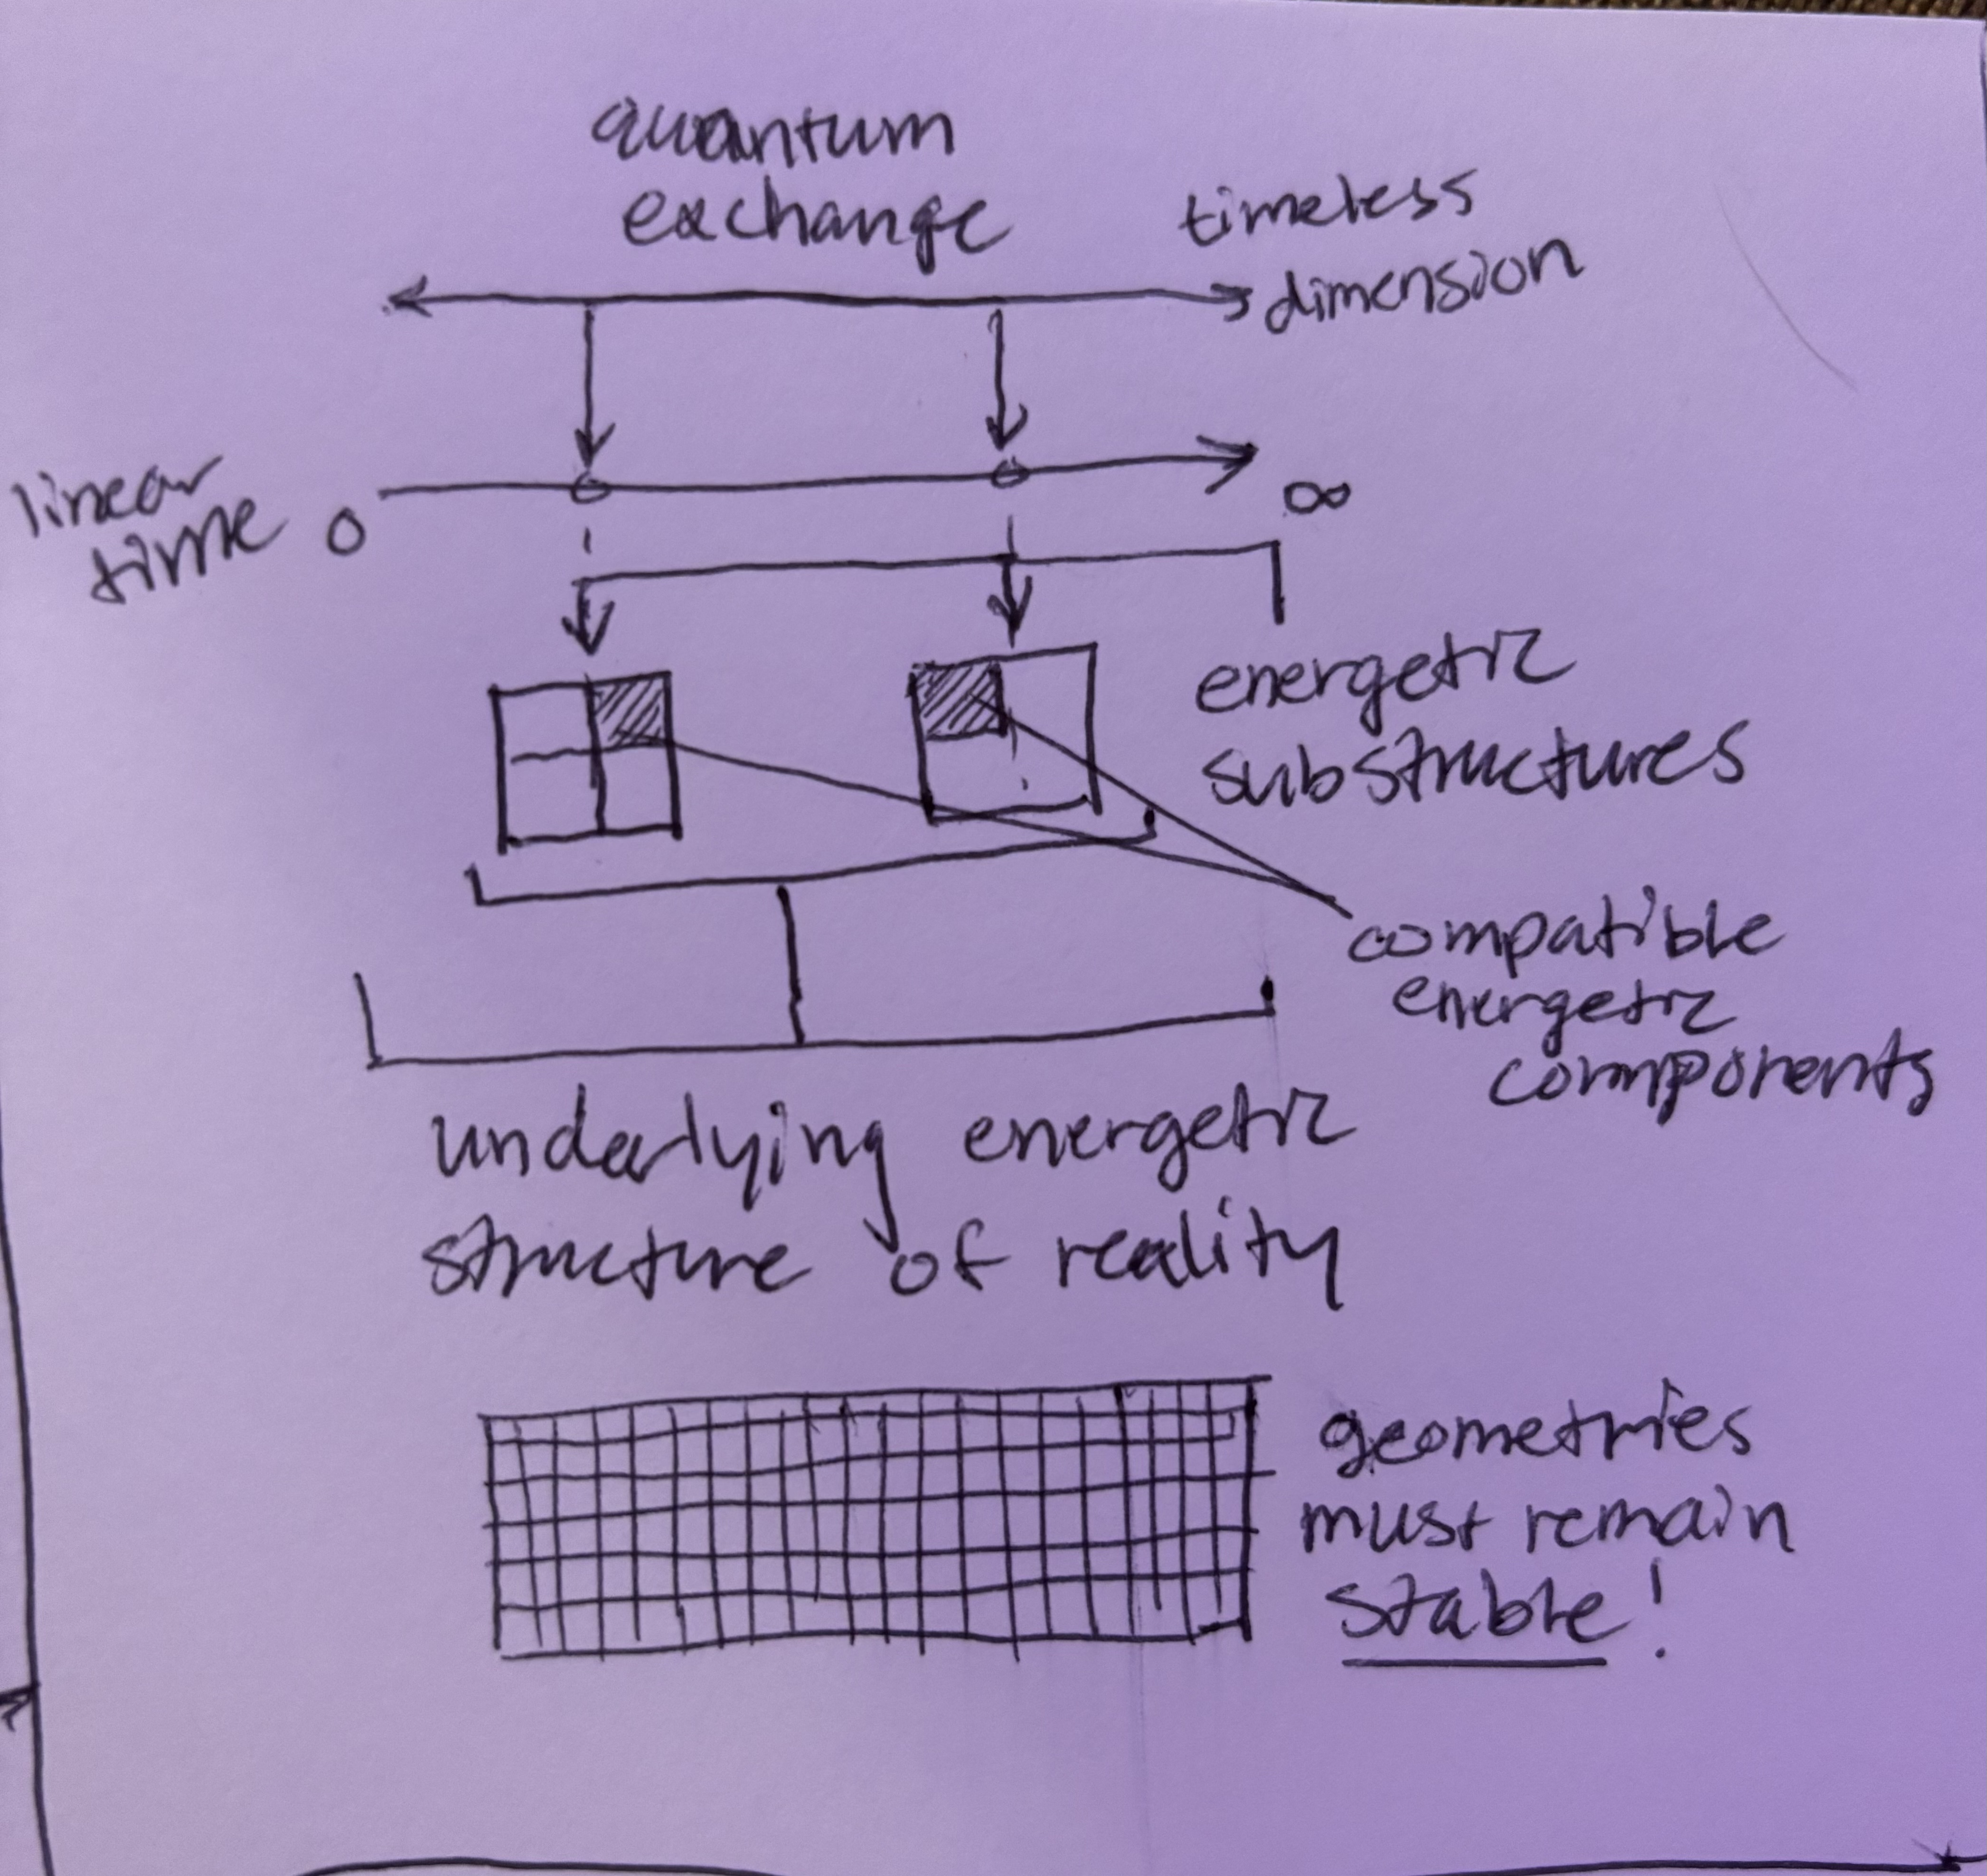 quantum
exchange
timeless
dimension
linear
time
0
∞
energetic
substructures
compatible
energetic
components
underlying energetic
structure of reality
geometries
must remain
stable!